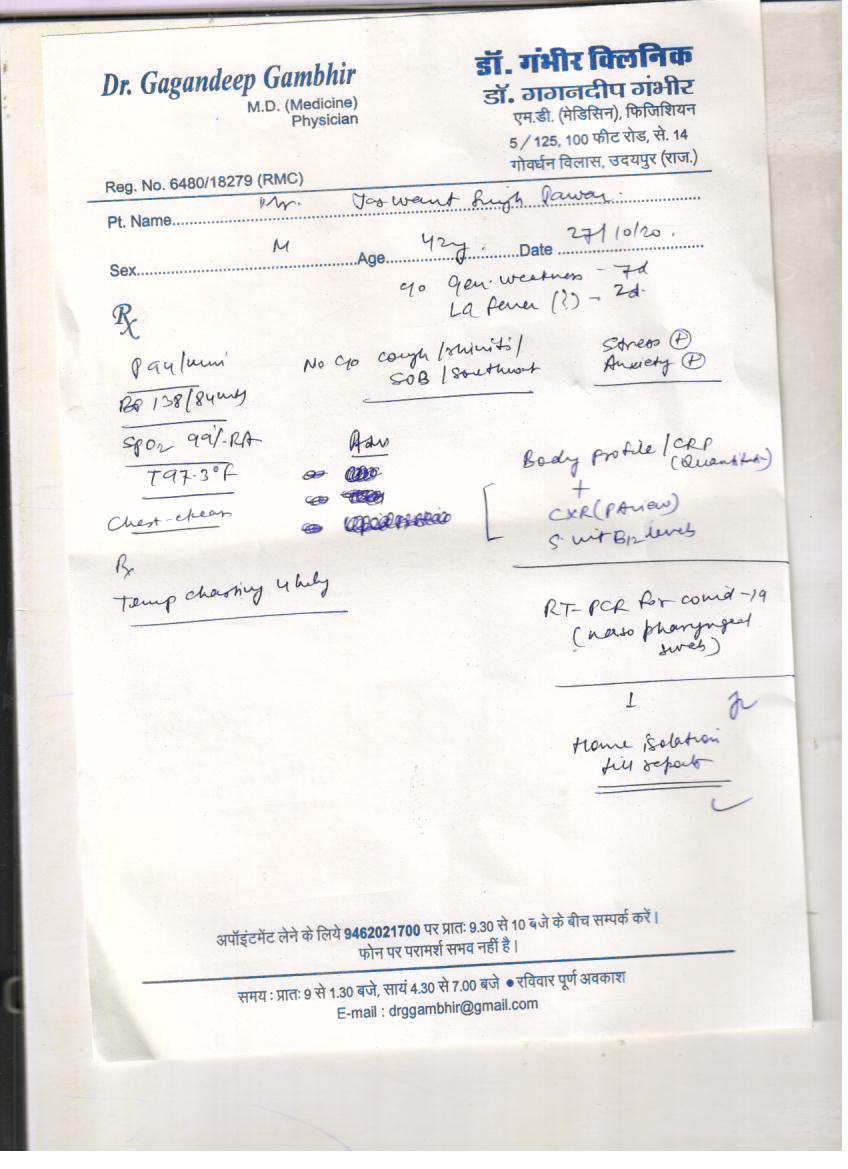 Dr. Gagandeep Gambhir
M.D. (Medicine)
Physician
Reg. No. 6480/18279 (RMC)
डॉ. गंभीर क्लिनिक
डॉ. गगनदीप गंभीर
एम.डी. (मेडिसिन), फिजिशियन
5/125, 100 फीट रोड, से. 14
गोवर्धन विलास, उदयपुर (राज.)
Pt. Name Mr. Jaswant Singh Pawar
Sex M Age 42y. Date 27/10/20.
c/o Gen. weakness - 7d
LG fever (?) - 2d.
Rx
P 94/min
BP 138/84
SpO2 99% RA
T 97.3°F
Chest-clear
No c/o cough/rhinitis/
SOB/Sorethroat
Stress (+)
Anxiety (+)
Adv
Body profile/CRP
(Quantitative)
+
CXR (PA view)
S. vit B12 levels
Rx
Temp charting 4 hrly
RT-PCR for covid-19
(naso pharyngeal
swab)
Home isolation
till reports
अपॉइंटमेंट लेने के लिये 9462021700 पर प्रातः 9.30 से 10 बजे के बीच सम्पर्क करें।
फोन पर परामर्श सभव नहीं है।
समय : प्रातः 9 से 1.30 बजे, सायं 4.30 से 7.00 बजे ● रविवार पूर्ण अवकाश
E-mail : drggambhir@gmail.com